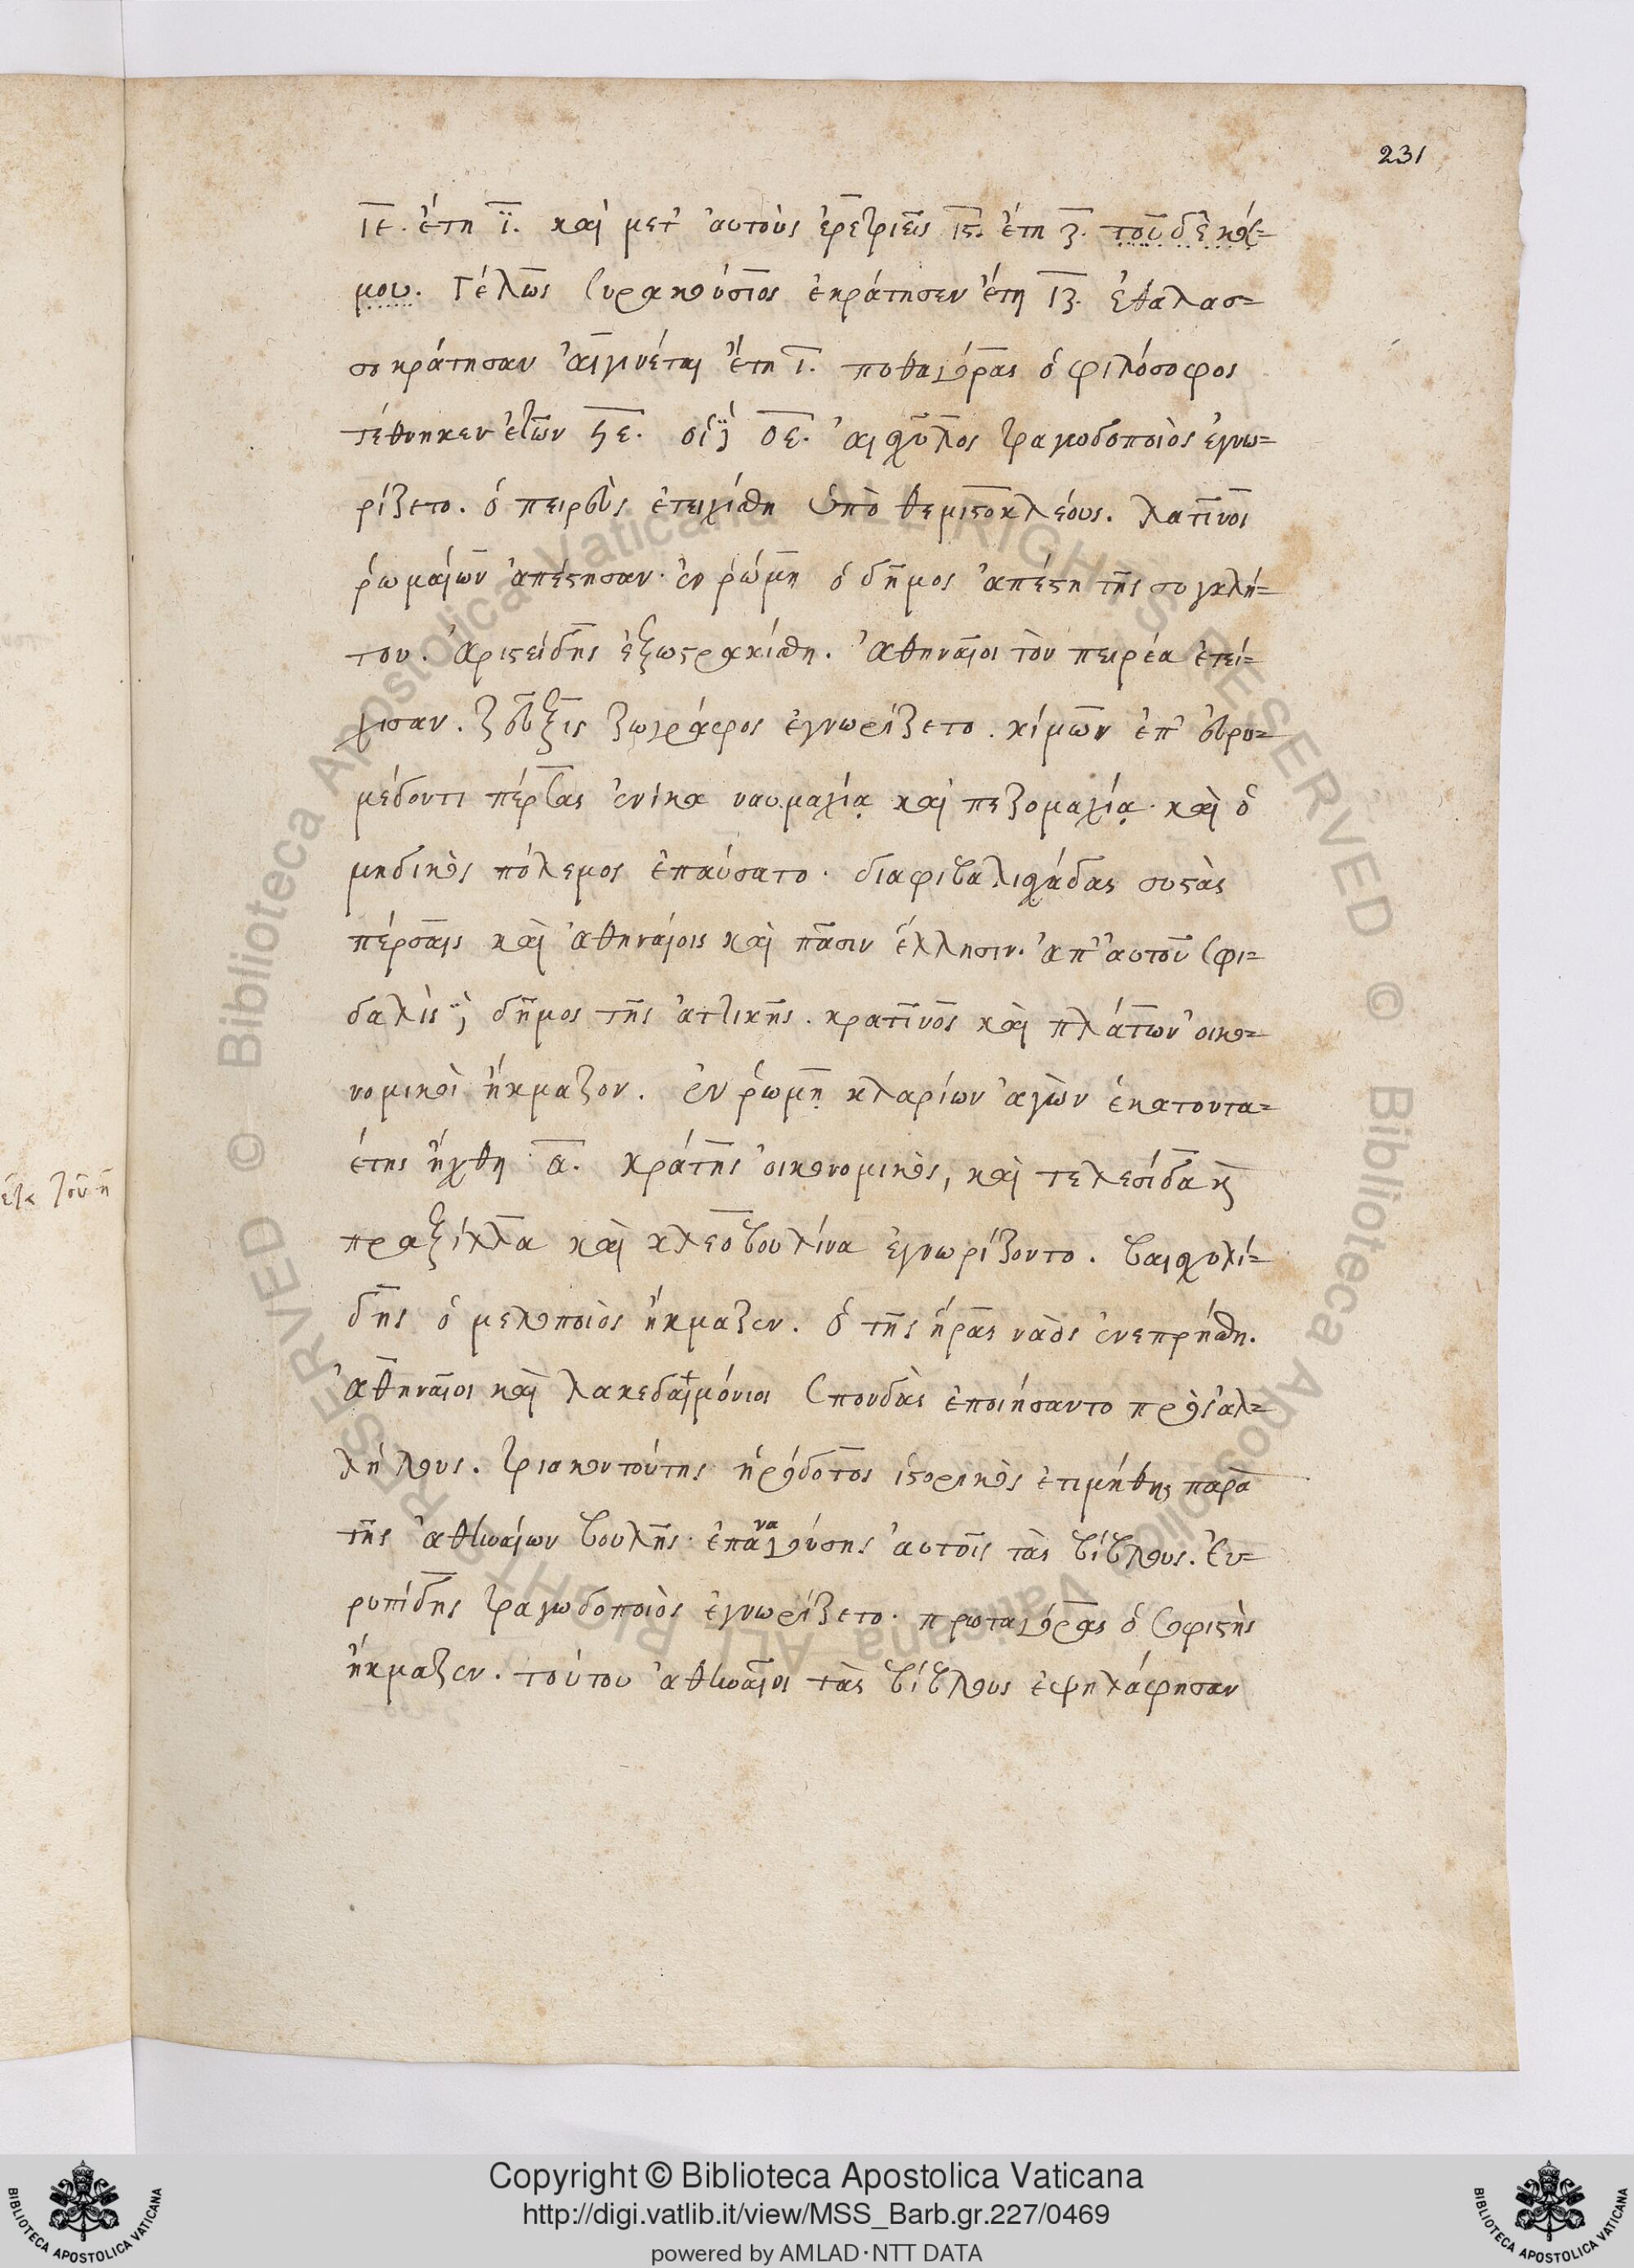 231
ιε. ἔτη ϊ. καὶ μετ' αυτοὺς ἐρετριεῖς ις. ἔτη ζ. τοῦ δὲ κόσ=
μου. Γέλως συρακούσιος ἐκράτησεν ἔτη ιζ. ἐθαλασ=
σοκράτησαν ἀιγινέται ἔτη ι. πυθαγόρας ὁ φιλόσοφος
τέθνηκεν ἐτῶν ϟε. οε. ἀισχύλος τραγωδοποιὸς ἐγνω=
ρίζετο. ὁ πειρεὺς ἐτειχίσθη ὑπὸ θεμιστοκλέους. λατῖνοι
ῥωμαίων ἀπέστησαν. ἐν ῥώμη ὁ δῆμος ἀπέστη τῆς συγκλή=
του. Ἀριστείδης ἐξωστρακίσθη. Ἀθηναῖοι τὸν πειρέα ἐτεί=
χισαν. ζεῦξις ζωγράφος ἐγνωρίζετο. κίμων ἐπ' ἐυρυ=
μέδοντι πέρσας ἐνίκα ναυμαχίᾳ καὶ πεζομαχίᾳ. καὶ ὁ
μηδικὸς πόλεμος ἐπαύσατο. συστὰς
πέρσαις καὶ ἀθηναίοις καὶ πᾶσιν ἕλλησιν. ἀπ' ἀυτοῦ σφι=
δαλὶς δῆμος τῆς ἀττικῆς. κρατῖνος καὶ πλάτων οἰκο=
νομικοὶ ἤκμαζον. ἐν ῥώμῃ κλαρίων ἀγὼν ἑκατοντα=
έτης ἤχθη α. κράτης οἰκονομικὸς, καὶ τελεσίδα κ
πραξίλλα καὶ κλεοβουλίνα ἐγνωρίζοντο. βαιχυλί=
δης ὁ μελοποιὸς ἤκμαζεν. ὁ τῆς ἥρας ναὸς ἐνεπρήσθη.
Ἀθηναῖοι καὶ λακεδαιμόνιοι σπονδὰς ἐποιήσαντο πρὸς ἀλ=
λήλους. τριακοντούτης ἡρόδοτος ἱστορικὸς ἐτιμήθη παρὰ
τῆς ἀθηναίων βουλῆς. ἐπαναγούσης ἀυτοῖς τὰς βίβλους. Ἐυ=
ρυπίδης τραγωδοποιὸς ἐγνωρίζετο. πρωταγόρας ὁ σοφιστὴς
ἤκμαζεν. τούτου ἀθηναῖοι τὰς βίβλους ἐψηλάφησαν
Copyright © Biblioteca Apostolica Vaticana
http://digi.vatlib.it/view/MSS_Barb.gr.227/0469
powered by AMLAD·NTT DATA
BIBLIOTECA APOSTOLICA VATICANA
BIBLIOTECA APOSTOLICA VATICANA
© Biblioteca Apostolica Vaticana ALL RIGHTS RESERVED
© Biblioteca Apostolica Vaticana ALL RIGHTS RESERVED